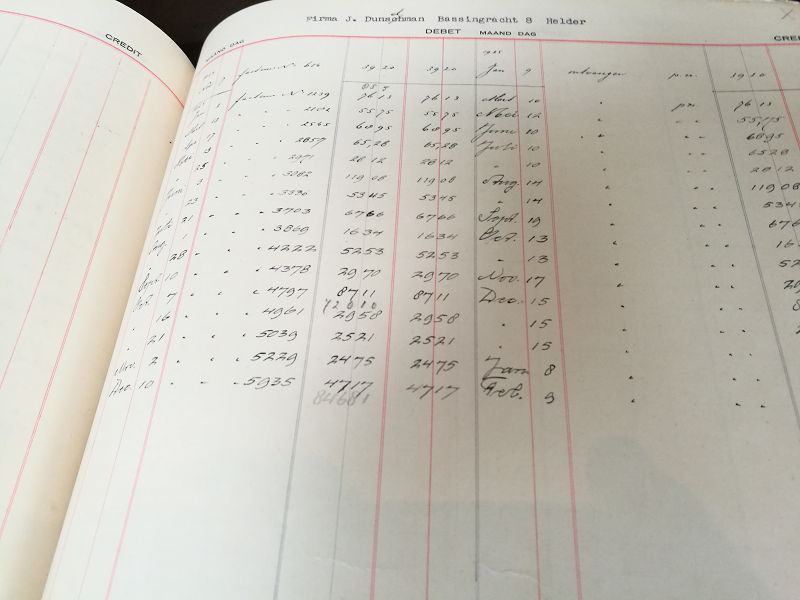 CREDIT
Firma J. Dunschman Bassingracht 8 Helder
MAAND DAG DEBET MAAND DAG CREDI
factuur No 616 39 20 39 20 Jan 9 ontvangen p.m. 39 20
factuur No 1239 96 13 96 13 Mrt 10 " p.m. 96 13
" " 2102 55 75 55 75 Mei 12 " " " 55 75
" " 2565 68 95 68 95 Juni 10 " " " 68 95
" " 2857 65,28 65,28 Juli 10 " " " 65 28
25 " " 2971 28 12 28 12 " 10 " " " 28 12
3 " " 3082 119 08 119 08 Aug. 14 " " " 119 08
23 " " 3336 53 45 53 45 " 14 " " " 534
21 " " 3703 67 66 67 66 Sept. 19 " " " 676
1 " " 3869 16 34 16 34 Oct. 13 " " " 16
28 " " 4222 52 53 52 53 " 13 " " " 52
Sept 10 " " 4378 29 70 29 70 Nov. 17 " " " 29
Oct. 7 " " 4797 87 11 87 11 Dec. 15 " " " 8
" 16 " " 4961 29 58 29 58 " 15 " " " 2
" 21 " " 5039 25 21 25 21 " 15 " " "
Nov. 2 " " 5229 24 75 24 75 Jan 8 " " "
Dec. 10 " " 5935 47 17 47 17 Feb. 9 " " "
84681